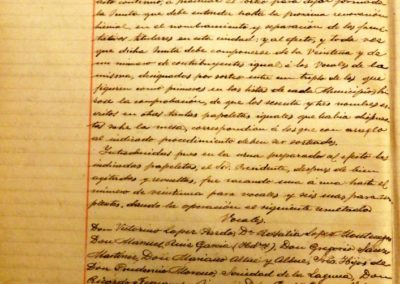 acto continuo, a practicar el sorteo para dejar formada
la Junta que debe entender hasta la proxima renovación
bienal, en el nombramiento y separación de los faculta
tivos titulares en esta ciudad; y al efecto, y toda vez
que dicha Junta debe componerse de la Veintena y de
un número de contribuyentes igual á los Vocales de la
misma, designados por sorteo entre un triple de los que
figuren como primeros en las listas de cada Municipio, hi
zose la comprobación, de que los sesenta y tres nombres es
critos en otras tantas papeletas iguales que había dispues
tas sobre la mesa, correspondian á los que con arreglo
al indicado procedimiento deben ser sorteados.
Introducidas pues en la urna preparada al efecto las
indicadas papeletas, el Sr. Presidente, despues de bien
agitadas y revueltas, fue sacando una á una hasta el
número de veintiuna para vocales y seis mas para su
plentes, dando la operación el siguiente resultado:
Vocales.
Don Victorino Lopez Pardo, Dª Rosalia Lopez Montenegro
Don Manuel Ruiz Garcia, Don Gregorio Saenz
Martinez, Don Mariano Albue y Albue, Sres Hijos de
Don Prudencio Moreno, Sociedad de la Laguna, Don
Ricardo